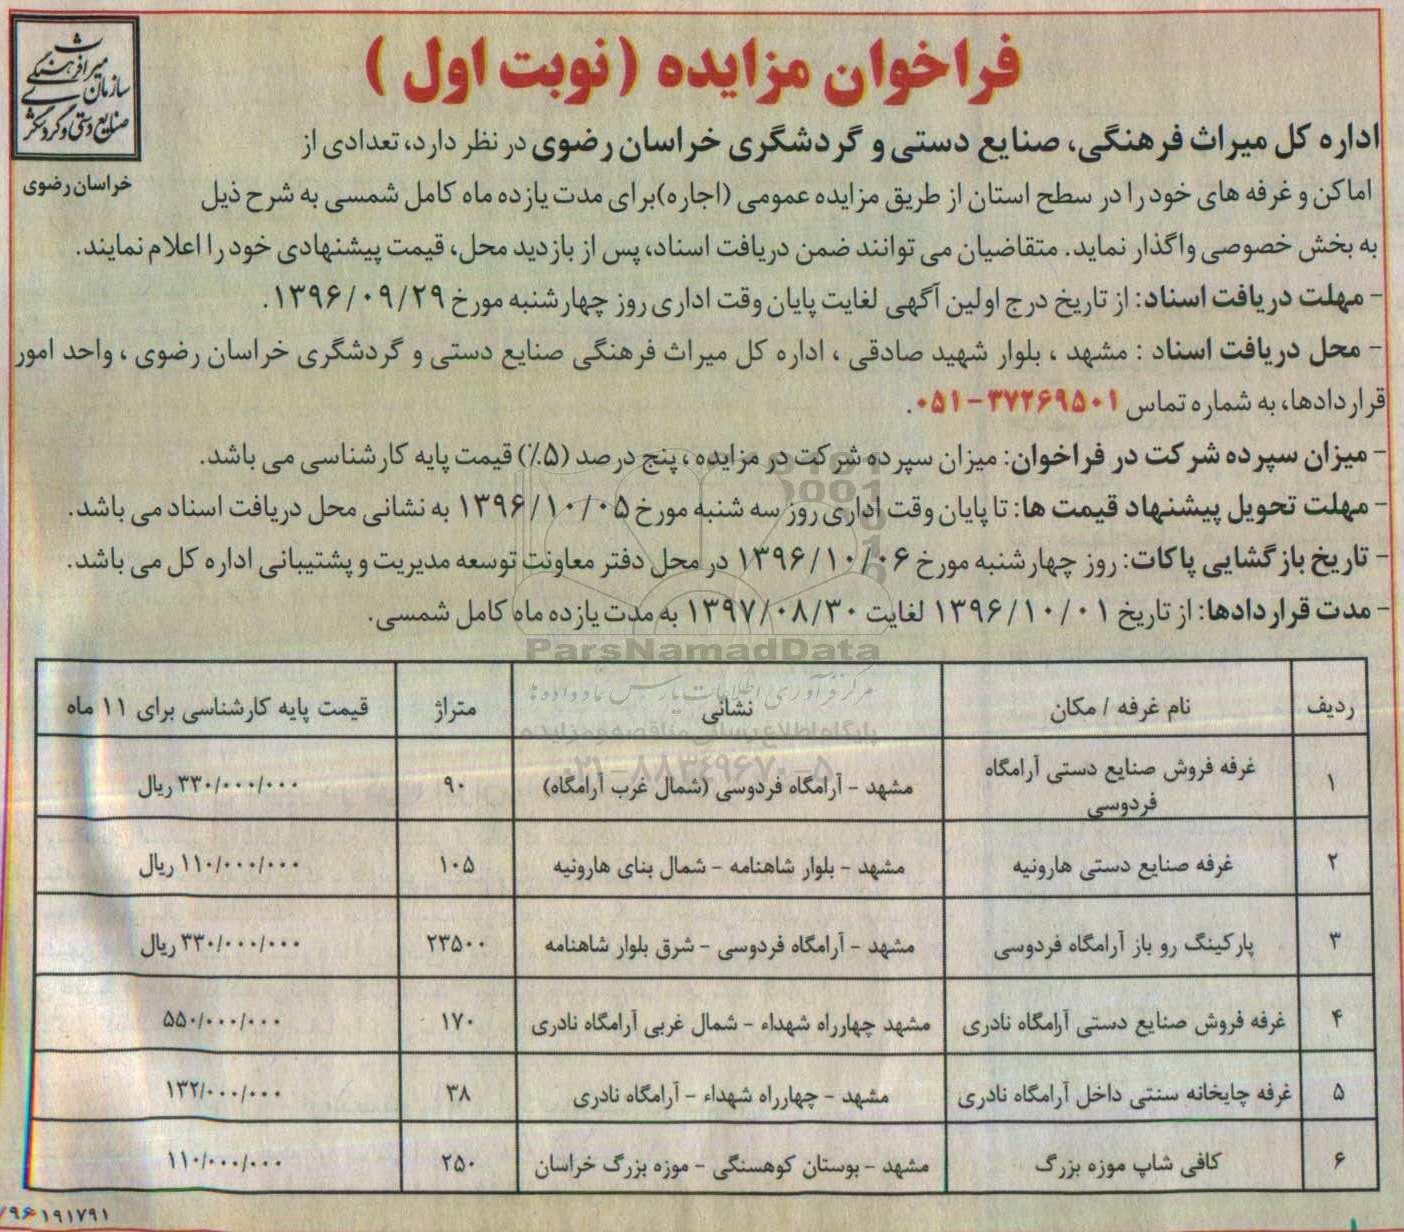 فراخوان مزایده (نوبت اول)
سازمان میراث فرهنگی
صنایع دستی و گردشگری
خراسان رضوی
اداره کل میراث فرهنگی، صنایع دستی و گردشگری خراسان رضوی در نظر دارد، تعدادی از
اماکن و غرفه های خود را در سطح استان از طریق مزایده عمومی (اجاره)برای مدت یازده ماه کامل شمسی به شرح ذیل
به بخش خصوصی واگذار نماید. متقاضیان می توانند ضمن دریافت اسناد، پس از بازدید محل، قیمت پیشنهادی خود را اعلام نمایند.
- مهلت دریافت اسناد: از تاریخ درج اولین آگهی لغایت پایان وقت اداری روز چهارشنبه مورخ ۱۳۹۶/۰۹/۲۹.
- محل دریافت اسناد : مشهد ، بلوار شهید صادقی ، اداره کل میراث فرهنگی صنایع دستی و گردشگری خراسان رضوی ، واحد امور
قراردادها، به شماره تماس ۳۷۲۶۹۵۰۱-۰۵۱.
- میزان سپرده شرکت در فراخوان: میزان سپرده شرکت در مزایده ، پنج درصد (۵٪) قیمت پایه کارشناسی می باشد.
- مهلت تحویل پیشنهاد قیمت ها: تا پایان وقت اداری روز سه شنبه مورخ ۱۳۹۶/۱۰/۰۵ به نشانی محل دریافت اسناد می باشد.
- تاریخ بازگشایی پاکات: روز چهارشنبه مورخ ۱۳۹۶/۱۰/۰۶ در محل دفتر معاونت توسعه مدیریت و پشتیبانی اداره کل می باشد.
- مدت قراردادها: از تاریخ ۱۳۹۶/۱۰/۰۱ لغایت ۱۳۹۷/۰۸/۳۰ به مدت یازده ماه کامل شمسی.
ParsNamadData
مرکز فرآوری اطلاعات پارس نماد داده ها
پایگاه اطلاع رسانی مناقصه و مزایده
۰۲۱-۸۸۳۴۹۶۷۰-۵
ردیف نام غرفه / مکان نشانی متراژ قیمت پایه کارشناسی برای ۱۱ ماه
۱ غرفه فروش صنایع دستی آرامگاه فردوسی مشهد - آرامگاه فردوسی (شمال غرب آرامگاه) ۹۰ ۳۳۰/۰۰۰/۰۰۰ ریال
۲ غرفه صنایع دستی هارونیه مشهد - بلوار شاهنامه - شمال بنای هارونیه ۱۰۵ ۱۱۰/۰۰۰/۰۰۰ ریال
۳ پارکینگ رو باز آرامگاه فردوسی مشهد - آرامگاه فردوسی - شرق بلوار شاهنامه ۲۳۵۰۰ ۳۳۰/۰۰۰/۰۰۰ ریال
۴ غرفه فروش صنایع دستی آرامگاه نادری مشهد چهارراه شهداء - شمال غربی آرامگاه نادری ۱۷۰ ۵۵۰/۰۰۰/۰۰۰
۵ غرفه چایخانه سنتی داخل آرامگاه نادری مشهد - چهارراه شهداء - آرامگاه نادری ۳۸ ۱۳۲/۰۰۰/۰۰۰
۶ کافی شاپ موزه بزرگ مشهد - بوستان کوهسنگی - موزه بزرگ خراسان ۲۵۰ ۱۱۰/۰۰۰/۰۰۰
/۹۶۱۹۱۷۹۱